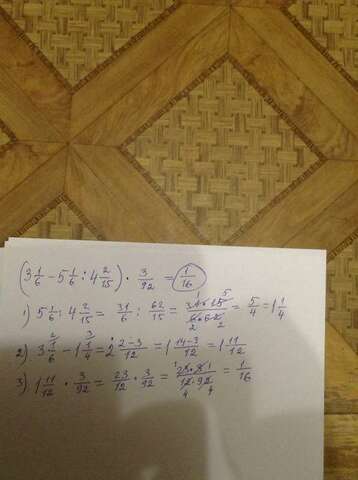 (3 1/6 - 5 1/6 : 4 2/15) · 3/92 = 1/16
1) 5 1/6 : 4 2/15 = 31/6 : 62/15 = 31·15/6·62 = 5/4 = 1 1/4
2) 3 1/6 - 1 1/4 = 2 2-3/12 = 1 14-3/12 = 1 11/12
3) 1 11/12 · 3/92 = 23/12 · 3/92 = 23·3/12·92 = 1/16